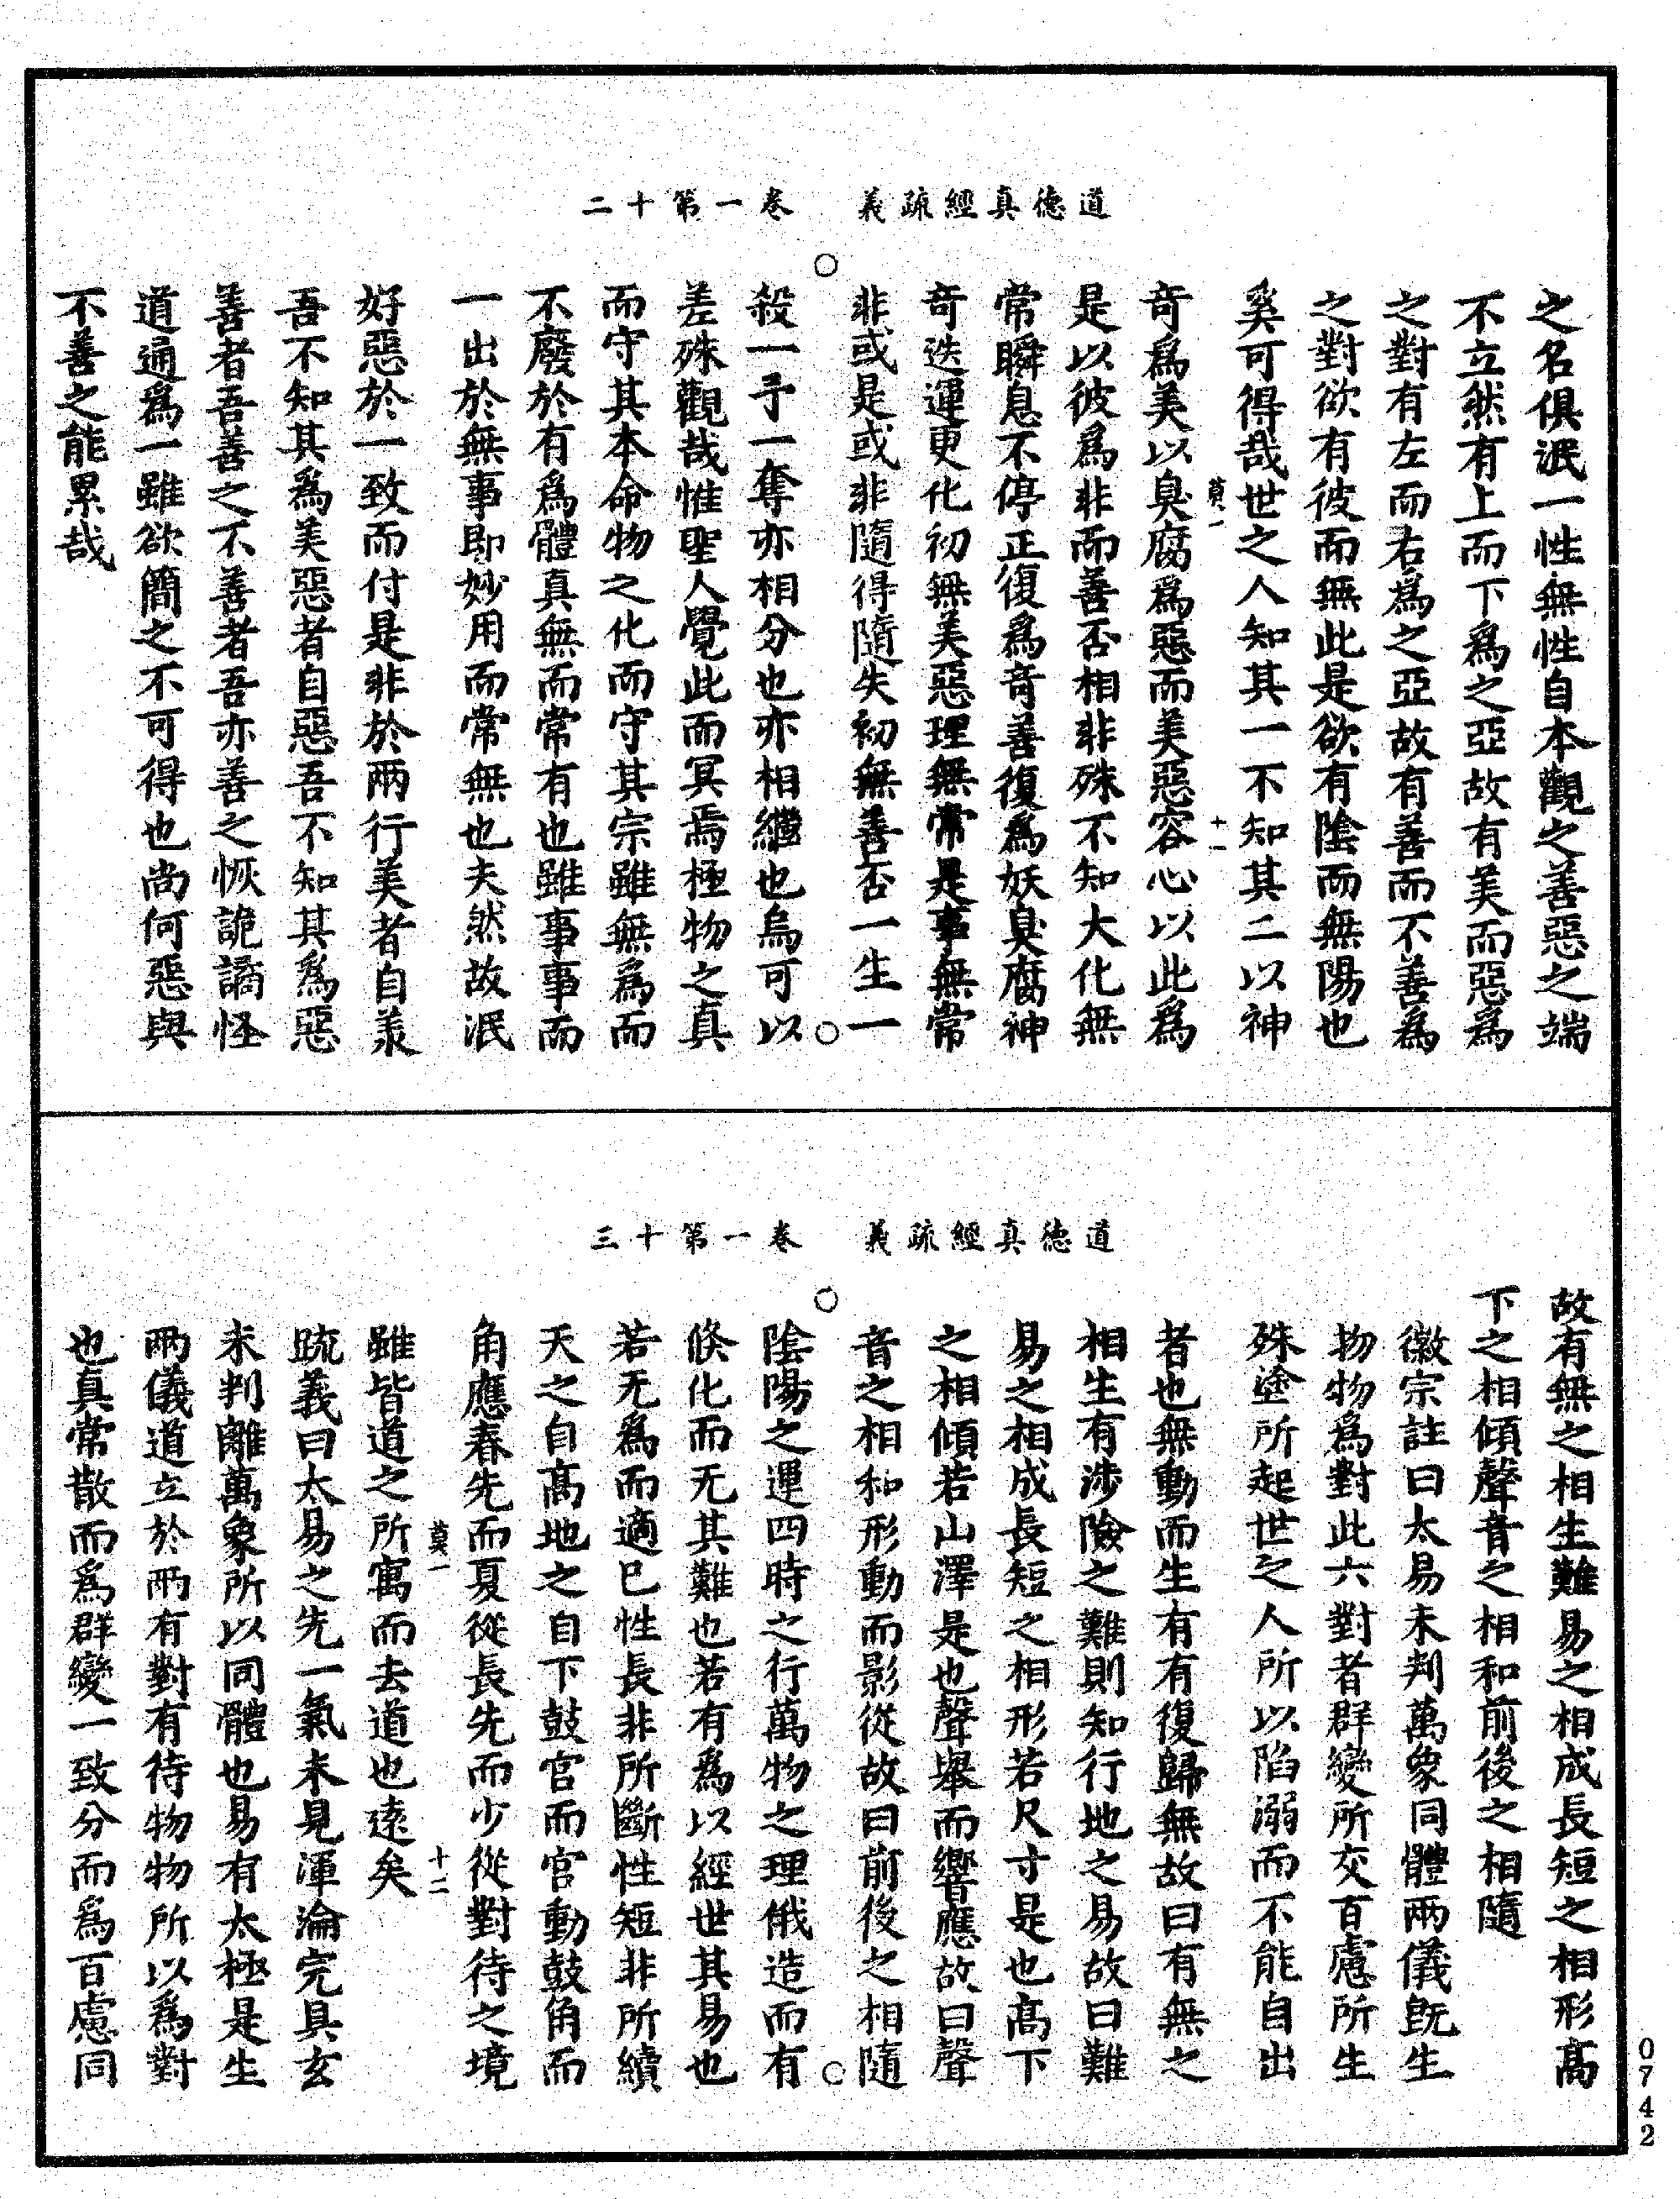 道德真經疏義　卷一第十二
之名俱泯一性無性自本觀之善惡之端
不立然有上而下爲之亞故有美而惡爲
之對有左而右爲之亞故有善而不善爲
之對欲有彼而無此是欲有陰而無陽也
奚可得哉世之人知其一不知其二以神
莫一　十一
奇爲美以臭腐爲惡而美惡容心以此爲
是以彼爲非而善否相非殊不知大化無
常瞬息不停正復爲奇善復爲妖臭腐神
奇迭運更化初無美惡理無常是事無常
非或是或非隨得隨失初無善否一生一
殺一予一奪亦相分也亦相繼也烏可以
差殊觀哉惟聖人覺此而冥焉極物之真
而守其本命物之化而守其宗雖無爲而
不廢於有爲體真無而常有也雖事事而
一出於無事即妙用而常無也夫然故泯
好惡於一致而付是非於兩行美者自美
吾不知其爲美惡者自惡吾不知其爲惡
善者吾善之不善者吾亦善之恢詭譎怪
道通爲一雖欲簡之不可得也尚何惡與
不善之能累哉
道德真經疏義　卷一第十三
故有無之相生難易之相成長短之相形高
下之相傾聲音之相和前後之相隨
徽宗註曰太易未判萬象同體兩儀既生
物物爲對此六對者群變所交百慮所生
殊塗所起世之人所以陷溺而不能自出
者也無動而生有有復歸無故曰有無之
相生有涉險之難則知行地之易故曰難
易之相成長短之相形若尺寸是也高下
之相傾若山澤是也聲舉而響應故曰聲
音之相和形動而影從故曰前後之相隨
陰陽之運四時之行萬物之理俄造而有
倏化而无其難也若有爲以經世其易也
若无爲而適已性長非所斷性短非所續
天之自高地之自下鼓宫而宫動鼓角而
角應春先而夏從長先而少從對待之境
莫一　十二
雖皆道之所寓而去道也遠矣
疏義曰太易之先一氣未見渾淪完具玄
未判離萬象所以同體也易有太極是生
兩儀道立於兩有對有待物物所以爲對
也真常散而爲群變一致分而爲百慮同
0742